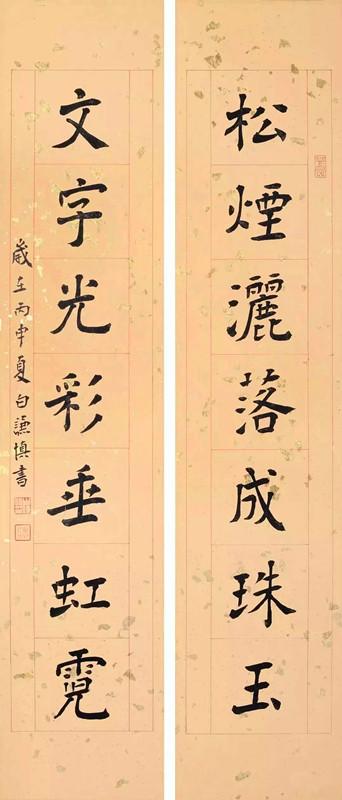 松煙灑落成珠玉
文字光彩垂虹霓
歲在丙申夏白謙慎書